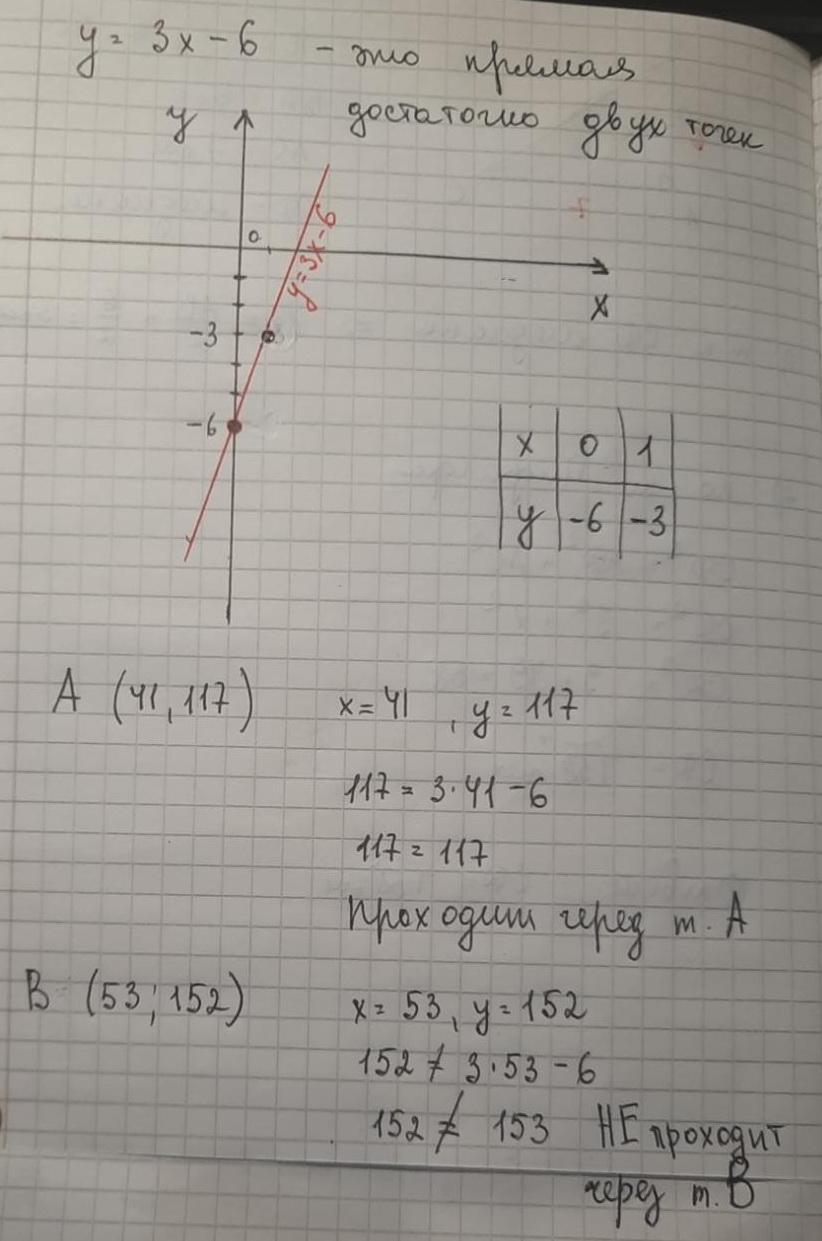 y = 3x - 6 - это прямая
достаточно двух точек
y
0
y=3x-6
x
-3
-6
x 0 1
y -6 -3
A (41, 117) x = 41, y = 117
117 = 3·41 - 6
117 = 117
Проходит через т. А
B (53; 152) x = 53, y = 152
152 ≠ 3·53 - 6
152 ≠ 153 НЕ проходит
через т. В